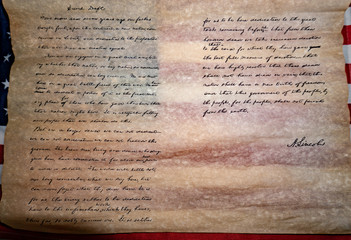 Four score and seven years ago our fathers
brought forth, upon this continent, a new nation,
conceived in Liberty, and dedicated to the proposition
that all men are created equal.
Now we are engaged in a great civil war, testing
whether that nation, or any nation so conceived
and so dedicated can long endure. We are met
here on a great battle-field of that war. We
have come to dedicate a portion of it as the
place of those who here gave their lives that
that nation might live. It is altogether fitting
and proper that we should do this.
But in a larger sense we can not dedicate
we can not consecrate we can not hallow the
ground. The brave men, living and dead, who
here have
or detract. The world will little note,
nor long remember, what we say here, but
can never forget what they did here. It is
for us, the living, rather to be dedicated
here to the unfinished work which they have,
thus far, so nobly carried on. It is rather
for us to be here dedicated to the great
task remaining before us that from these
honored dead we take increased devotion
to the cause for which they here gave
the last full measure of devotion that
we here highly resolve that these dead
shall not have died in vain; that the
nation shall have a new birth of freedom
and that this government of the people, by
the people, for the people, shall not perish
from the earth.
A. Lincoln